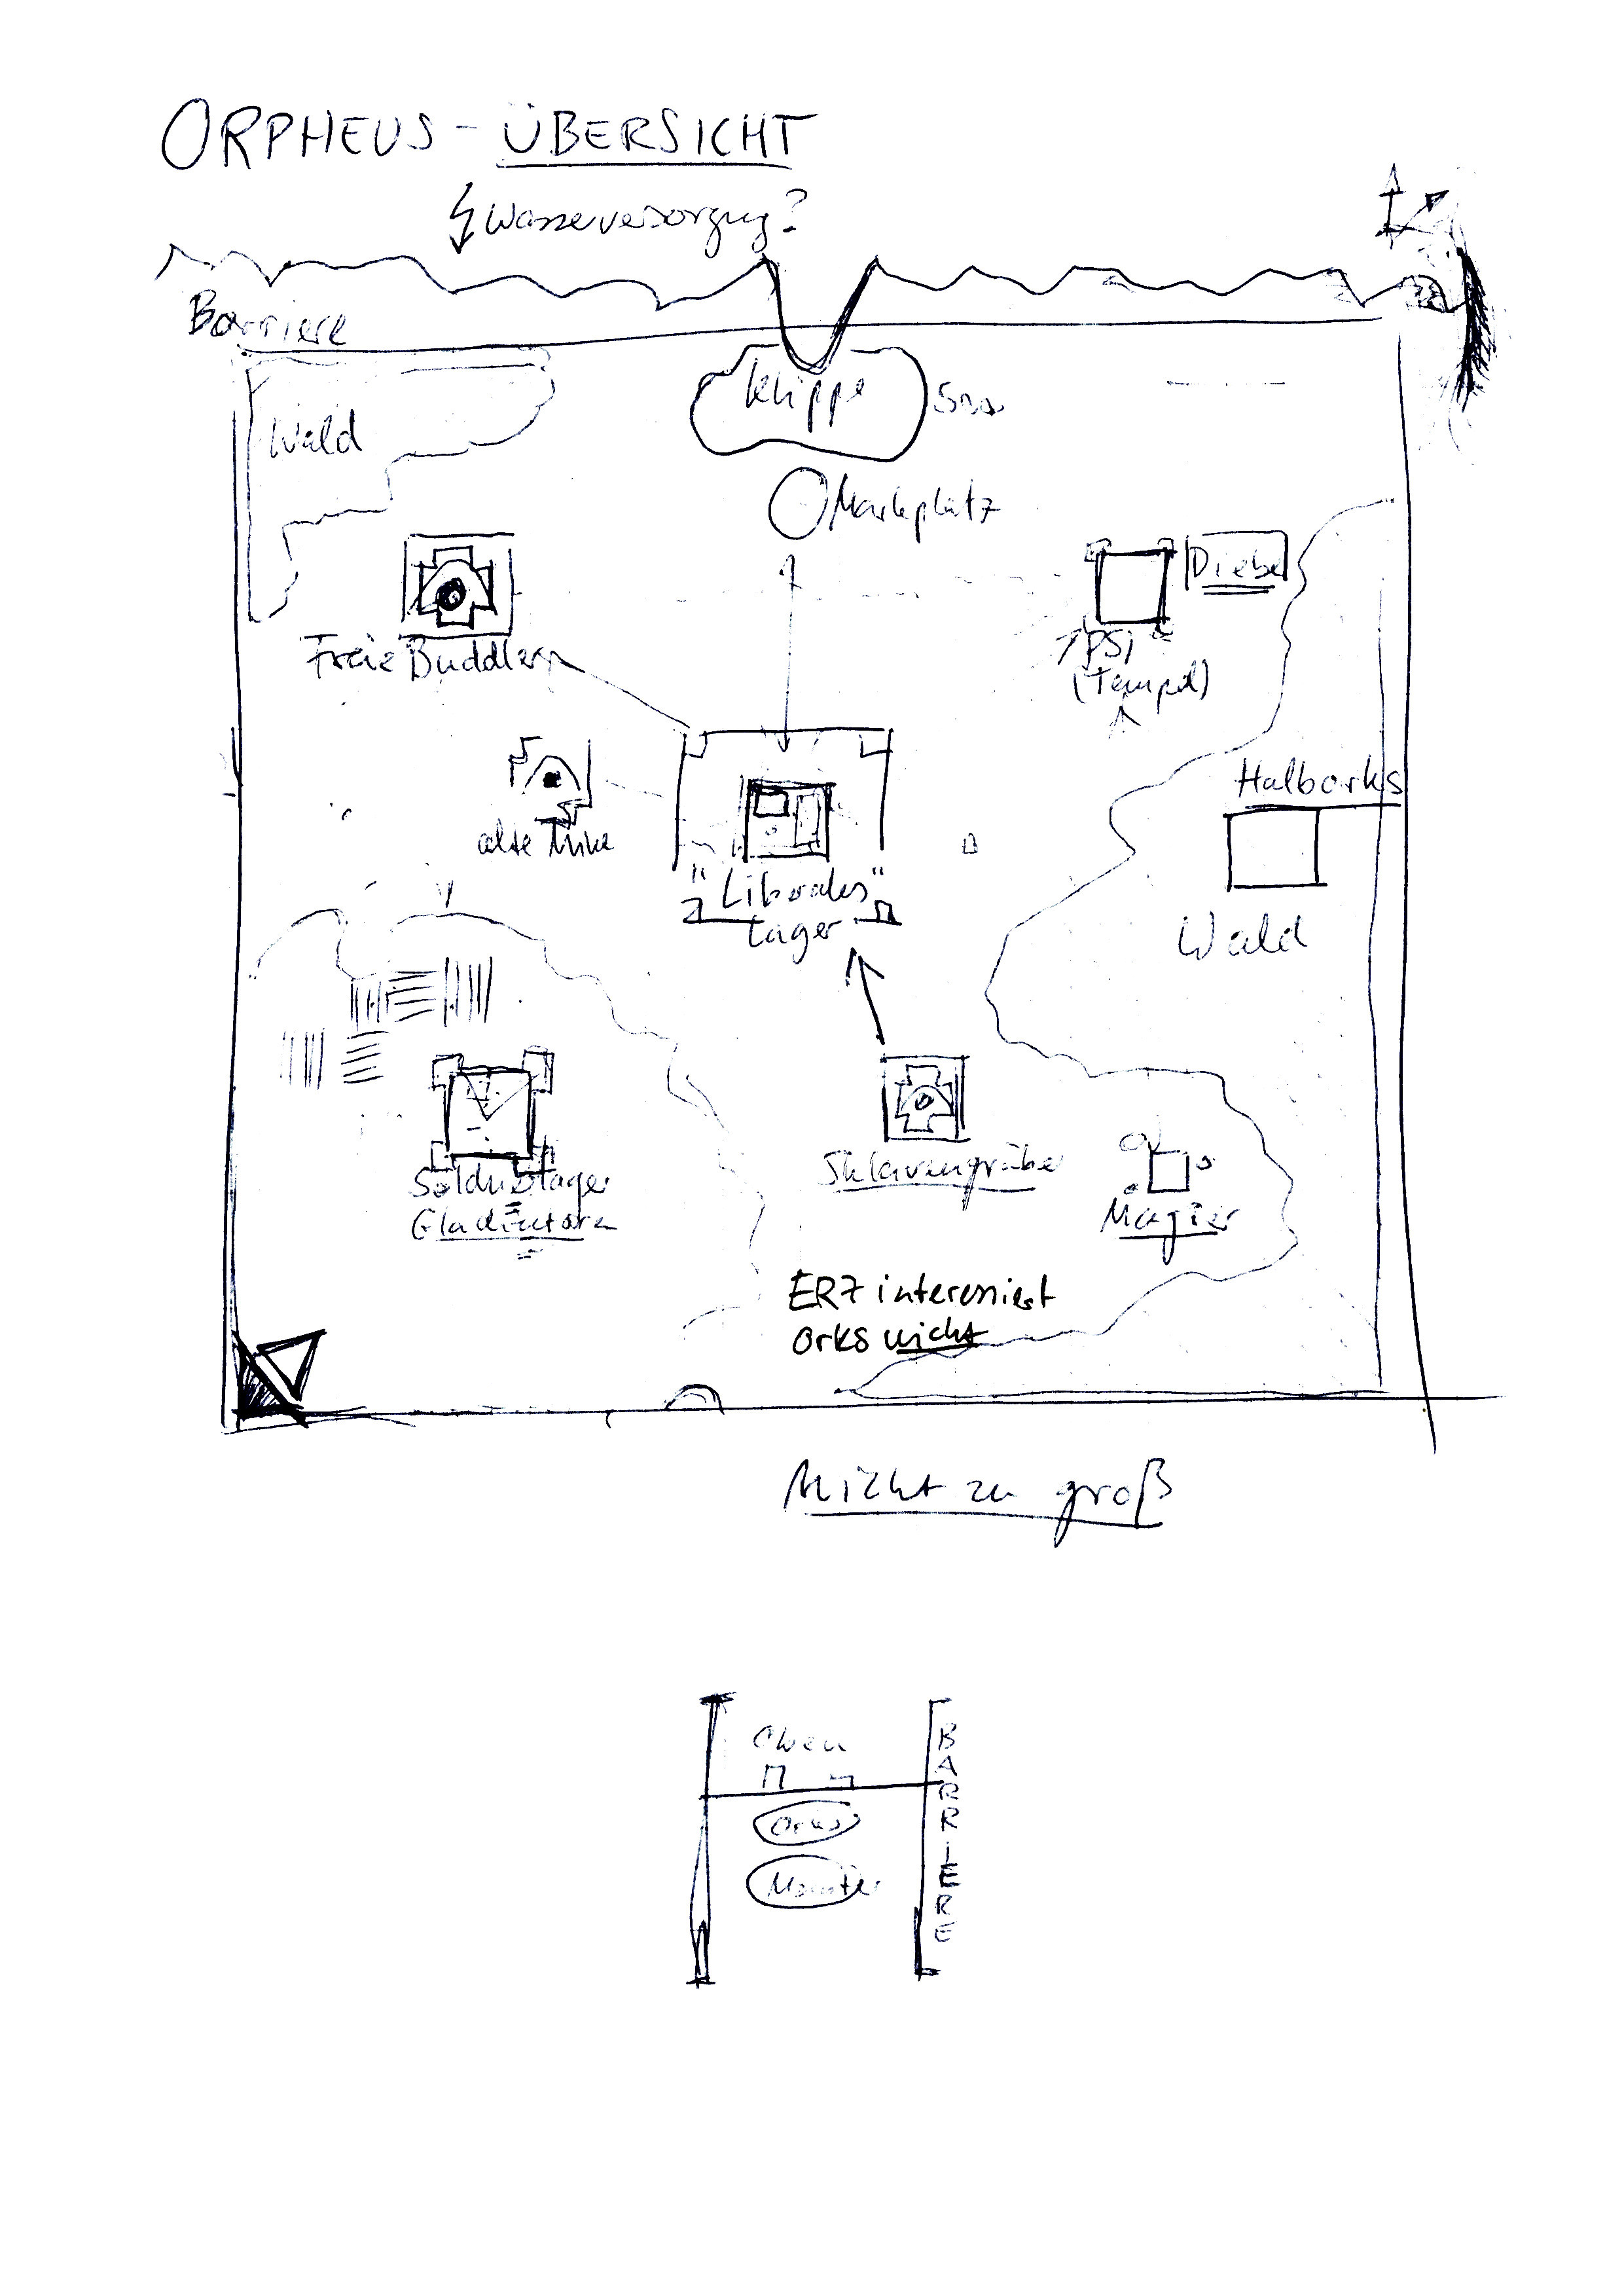 ORPHEUS - ÜBERSICHT
Wasserversorgung?
Barriere
Wald
Klippe
Markplatz
Diebe
PSI
(Tempel)
Freie Buddler
Halborks
alte Mine
"Liberales"
Lager
Wald
Söldnerlager
Gladiatoren
Sklavengrube
Magier
ERZ interessiert
Orks nicht
Nicht zu groß
Oben
Orks
Monster
BARRIERE